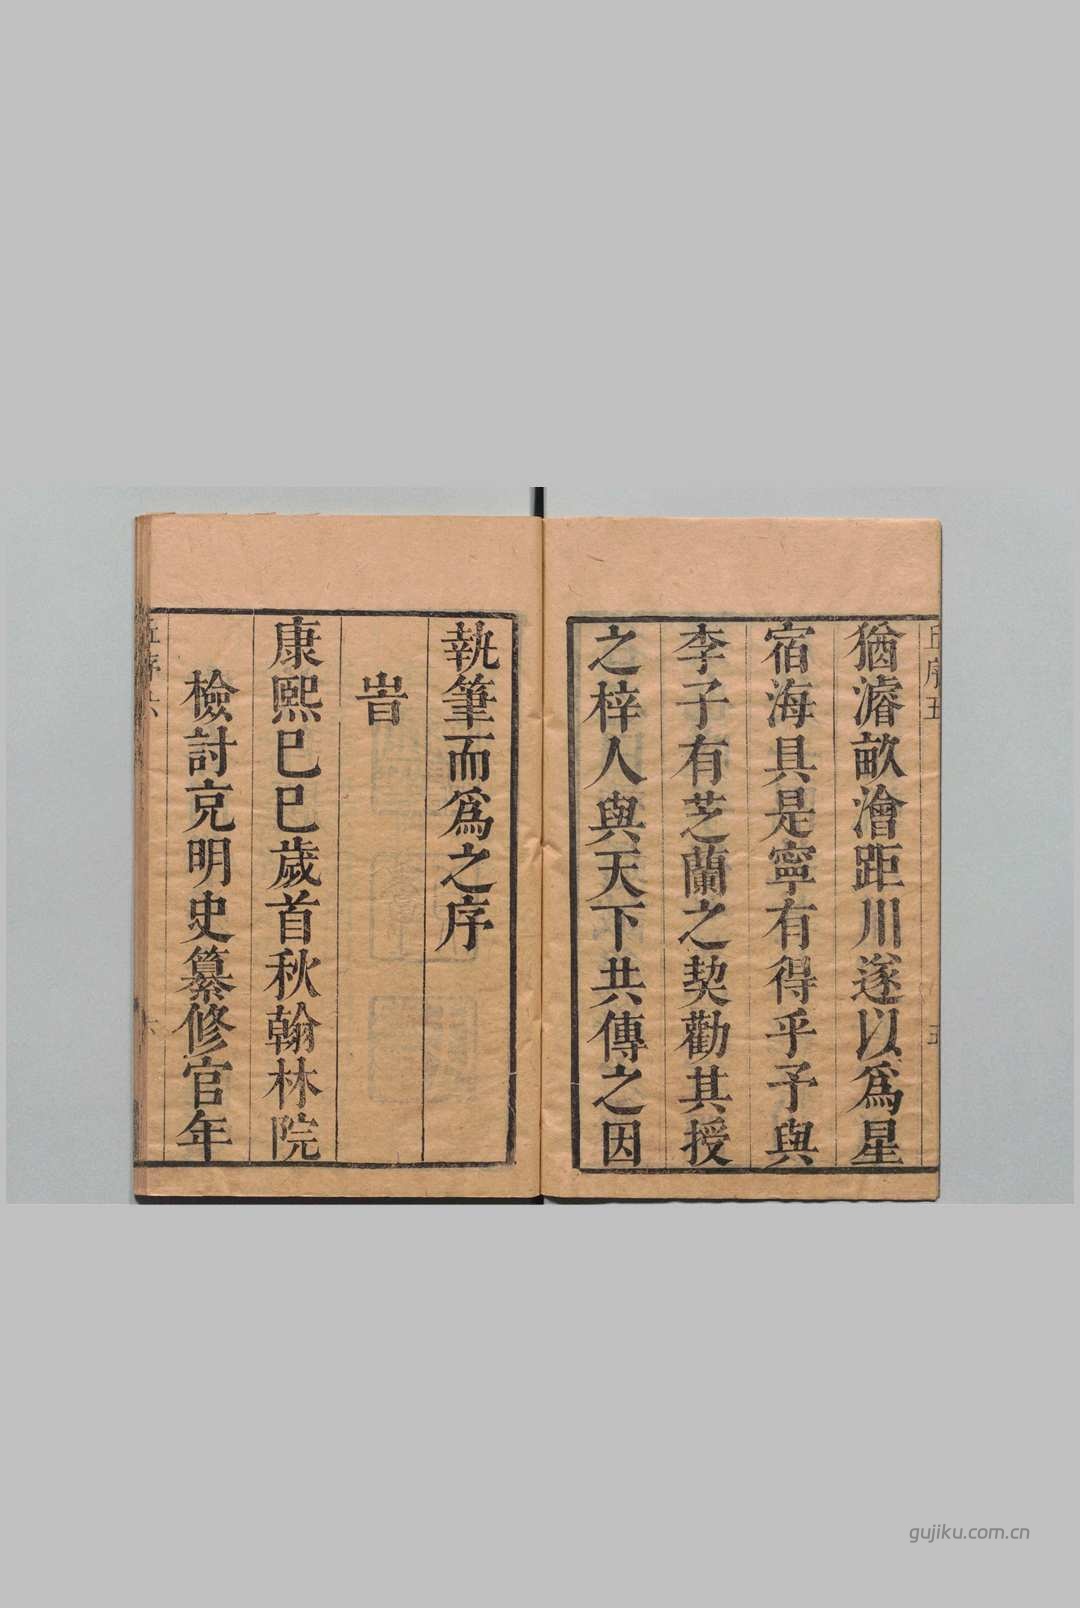 猶濬畝澮距川遂以爲星
宿海具是寧有得乎予與
李子有芝蘭之契勸其授
之梓人與天下共傳之因
執筆而爲之序
旹
康熙己巳歲首秋翰林院
檢討充明史纂修官年
gujiku.com.cn